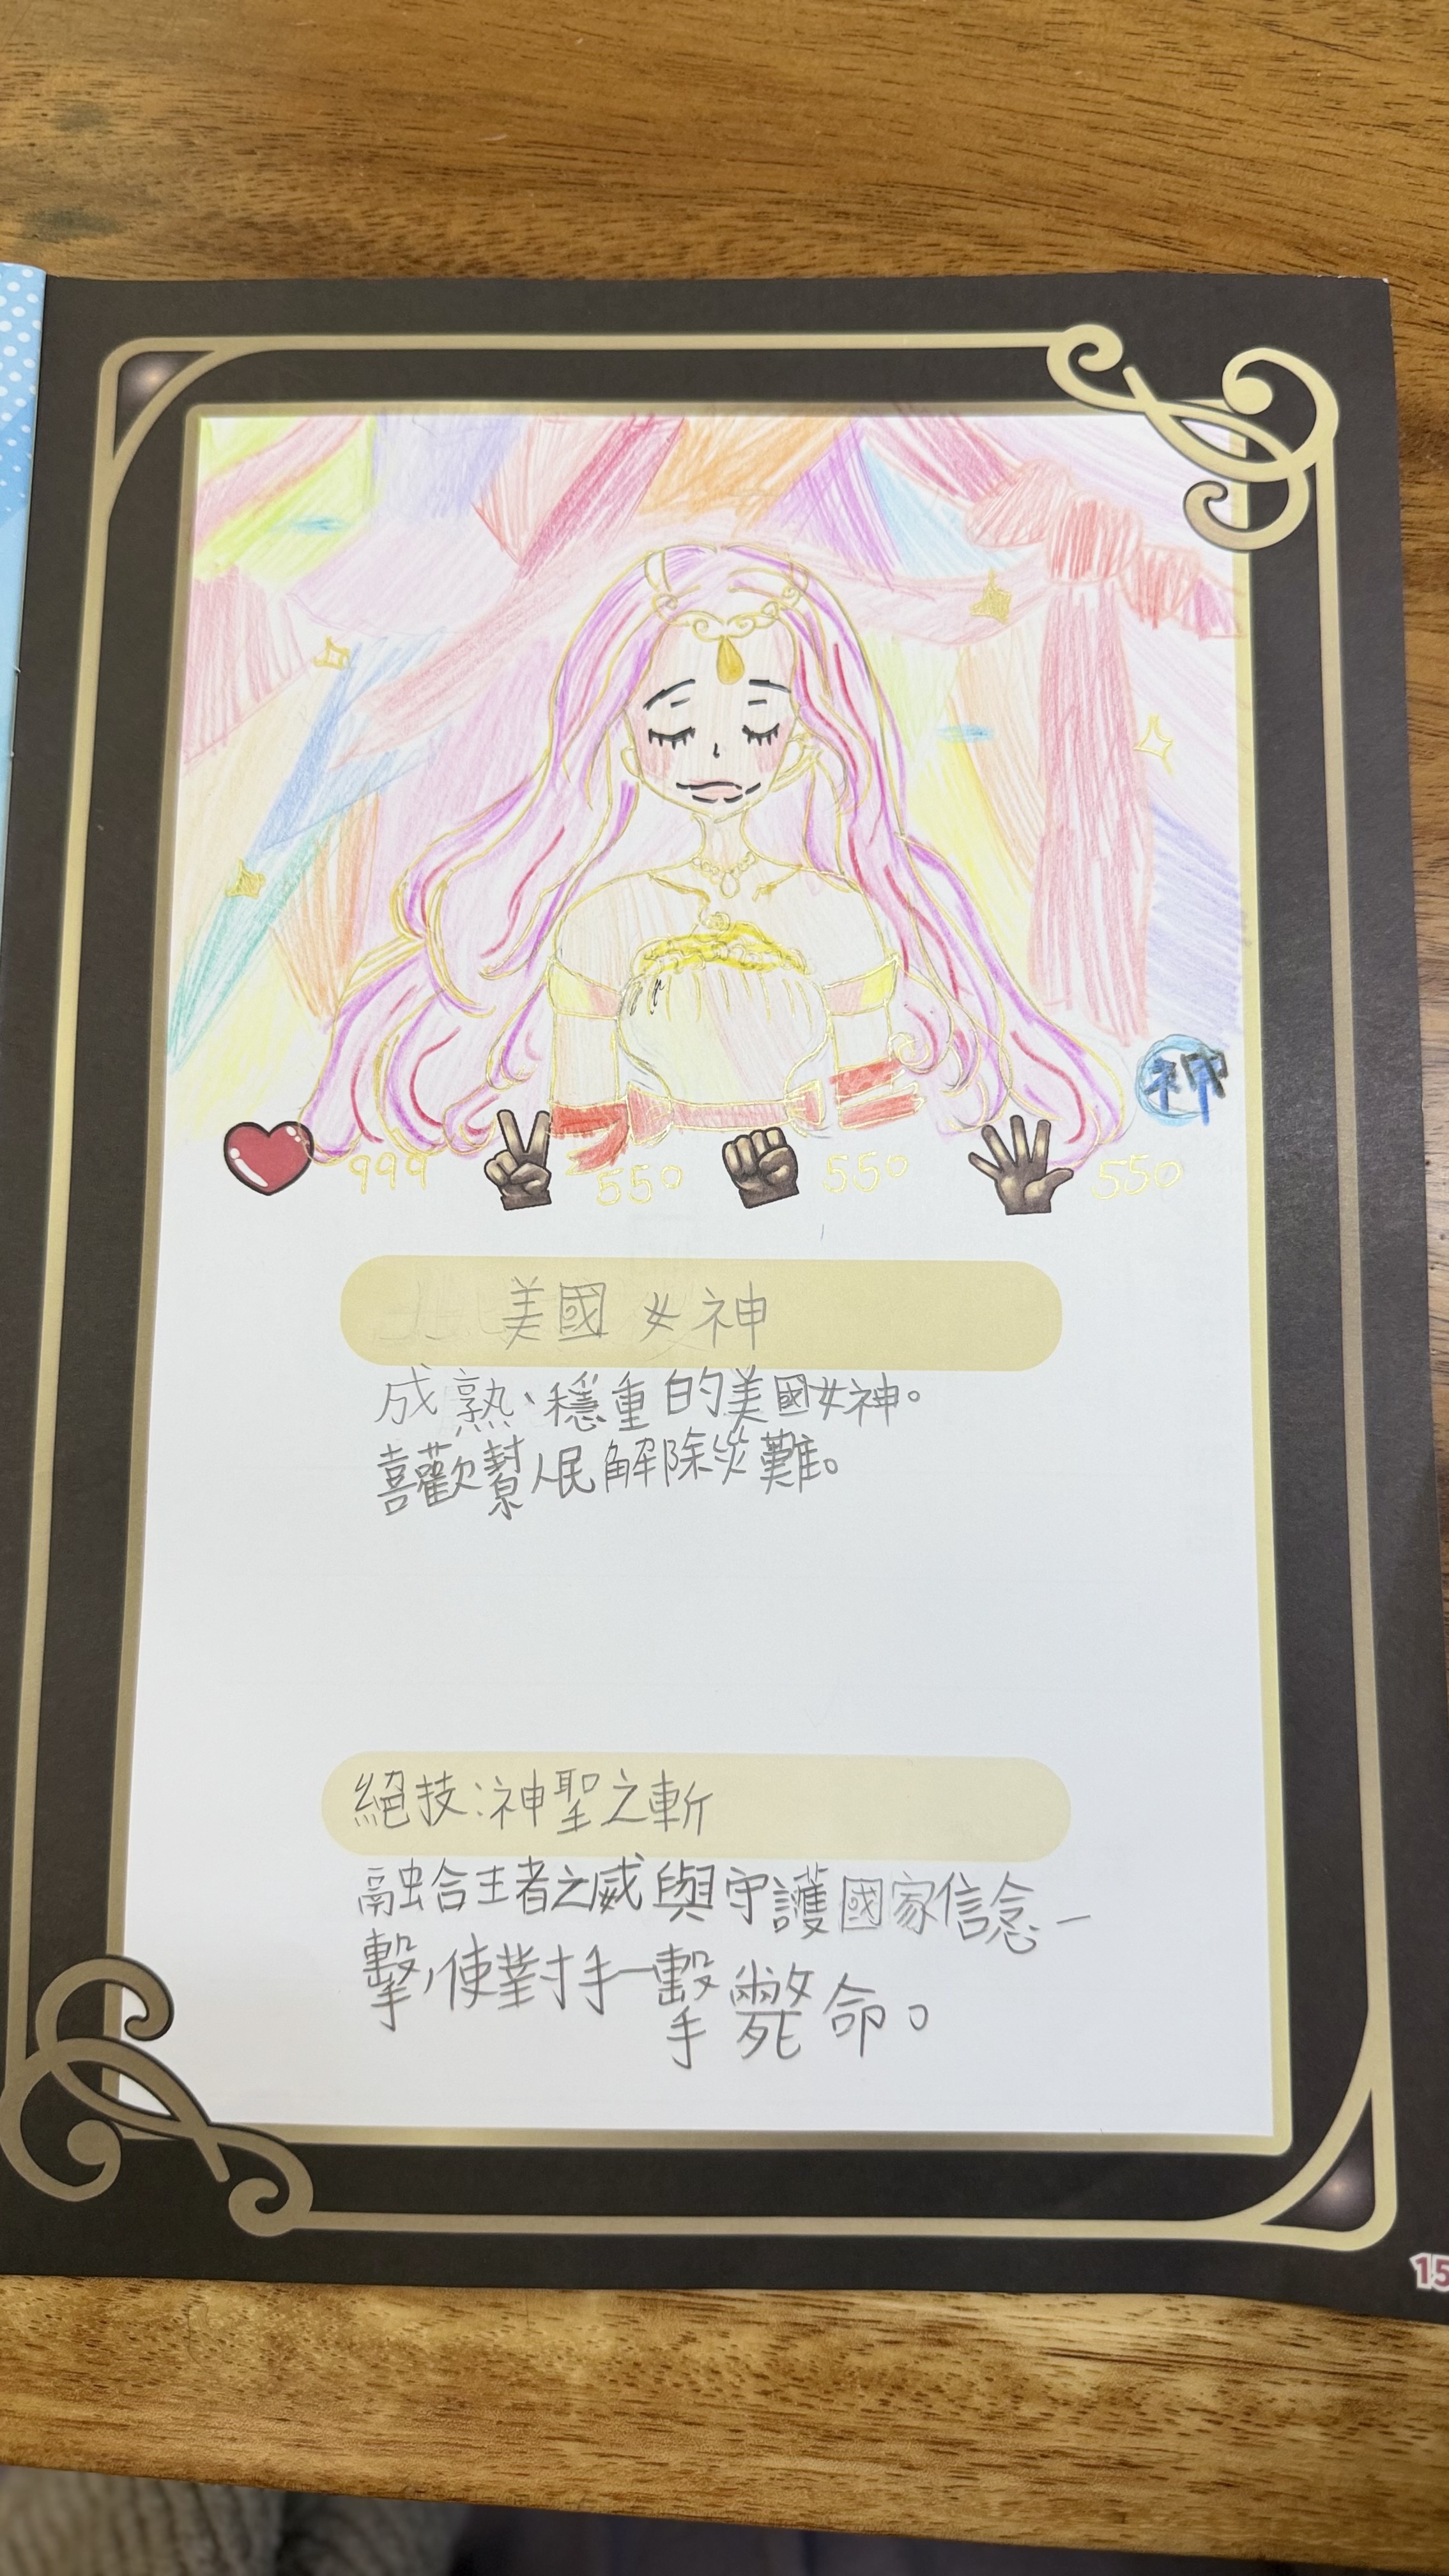 神
999 550 550 550
美國女神
成熟、穩重的美國女神。
喜歡幫人民解除災難。
絕技:神聖之斬
融合王者之威與守護國家信念一
擊,使對手一擊斃命。
15